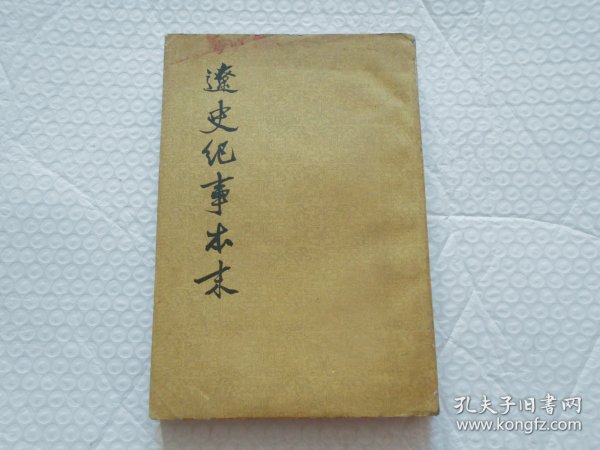 遼史紀事本末
孔夫子旧書网
www.kongfz.com